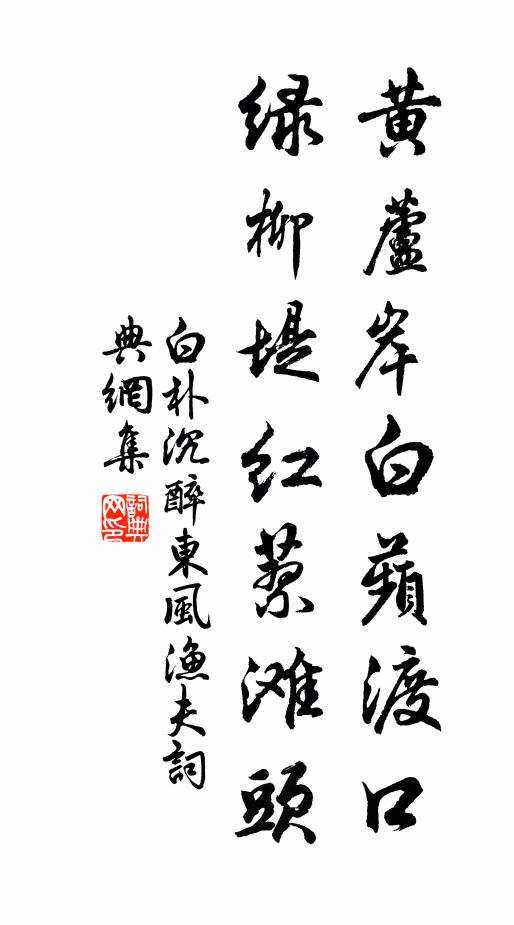 黃蘆岸白蘋渡口
绿柳堤红蓼滩頭
白朴沉醉東風漁夫詞
典網集
詞典网印